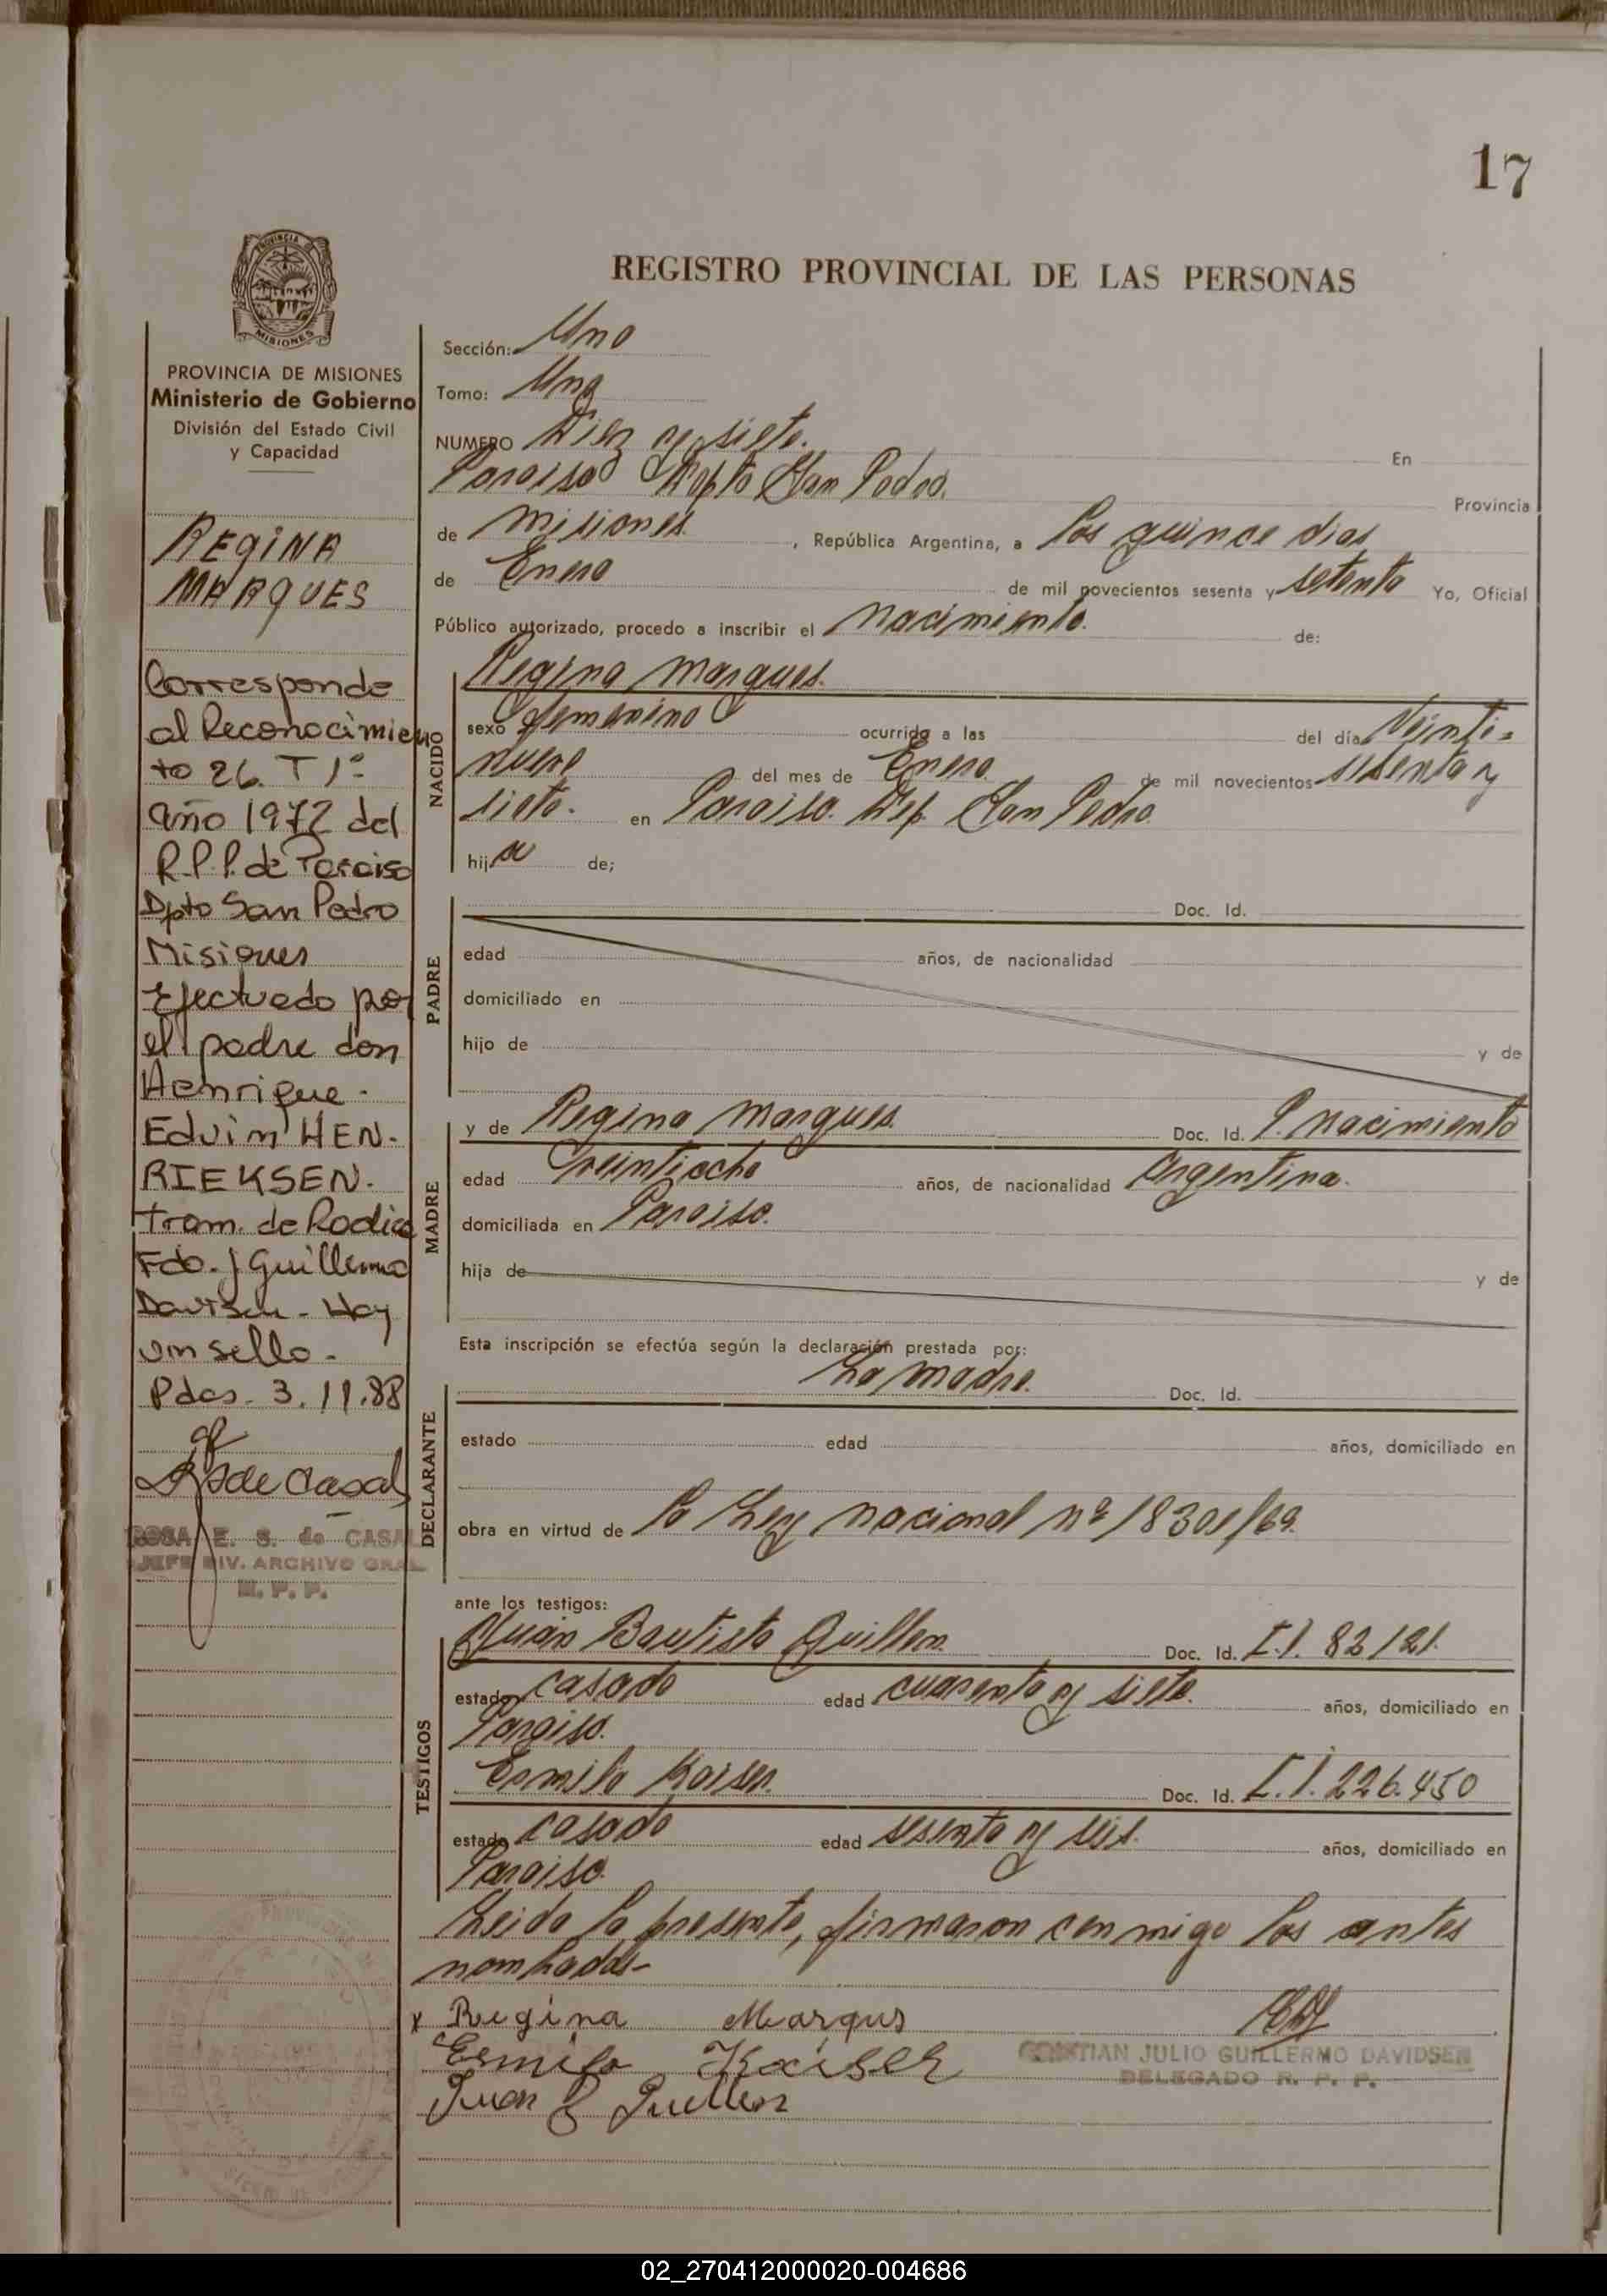 17
PROVINCIA DE
MISIONES
REGISTRO PROVINCIAL DE LAS PERSONAS
PROVINCIA DE MISIONES
Ministerio de Gobierno
División del Estado Civil
y Capacidad
REGINA
MARQUES
Corresponde
al Reconocimien
to 26. T 1º
año 1972 del
R.P.P. de Paraiso
Dpto San Pedro
Misiones
Efectuado por
el padre don
Henrique -
Edvin HEN-
RIEKSEN.
tram. de Rodica
Fdo. J Guillermo
Davidsen - Hay
un sello -
Pdas. 3.11.88
de Casal
ROSA E. S. de CASAL
JEFE DIV. ARCHIVO GRAL
R. P. P.
Sección: Uno
Tomo: Uno
NUMERO Diez y siete. En
Paraiso Depto San Pedro. Provincia
de Misiones. , República Argentina, a los quince dias
de Enero de mil novecientos sesenta y setenta Yo, Oficial
Público autorizado, procedo a inscribir el nacimiento. de:
NACIDO
Regina Marques.
sexo femenino ocurrido a las del día Veinti-
nueve del mes de Enero de mil novecientos sesenta y
siete. en Paraiso. Dep. San Pedro.
hija de;
PADRE
Doc. Id.
edad años, de nacionalidad
domiciliado en
hijo de y de
MADRE
y de Regina Marques. Doc. Id. P. Nacimiento
edad Treintiocho años, de nacionalidad Argentina.
domiciliada en Paraiso.
hija de y de
Esta inscripción se efectúa según la declaración prestada por:
DECLARANTE
La madre. Doc. Id.
estado edad años, domiciliado en
obra en virtud de la Ley nacional nº 18301/69.
ante los testigos:
TESTIGOS
Juan Bautista Guillen. Doc. Id. C.I. 82121.
estado casado edad cuarenta y siete. años, domiciliado en
Paraiso.
Ermilo Kaiser. Doc. Id. C.I. 226.450
estado casado edad sesenta y seis. años, domiciliado en
Paraiso.
Leida la presente, firmaron conmigo los antes
nombrados-
x Regina Marqus
Ermilo Kaiser
Juan B Guillen
CRISTIAN JULIO GUILLERMO DAVIDSEN
DELEGADO R. P. P.
02_270412000020-004686